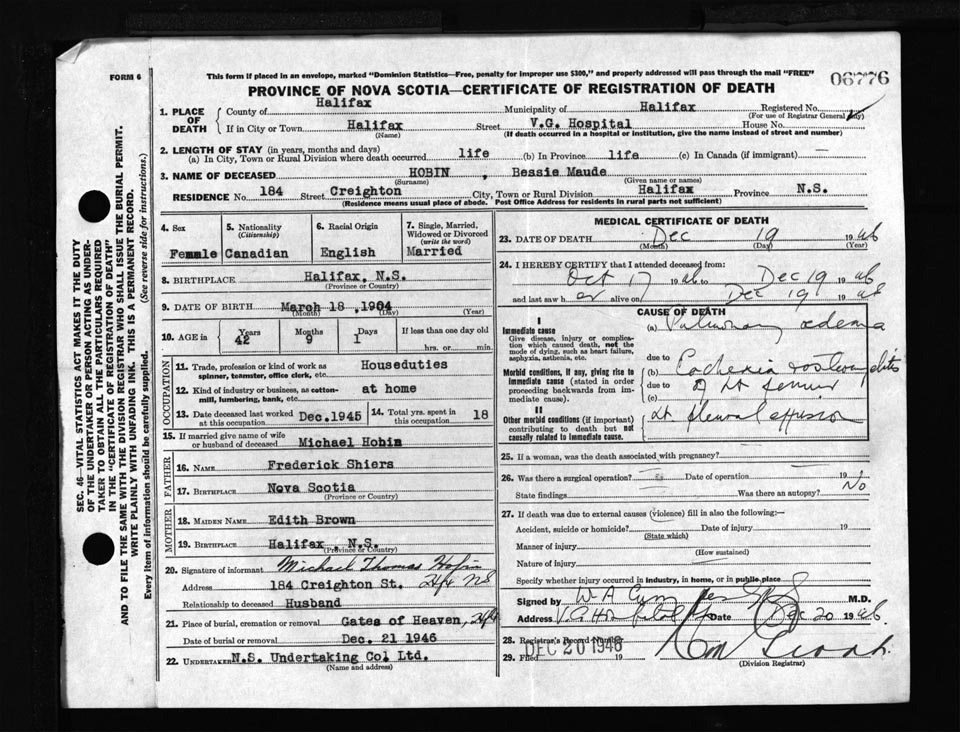 FORM 6
This form if placed in an envelope, marked "Dominion Statistics—Free, penalty for improper use $300," and properly addressed will pass through the mail "FREE"
06776
PROVINCE OF NOVA SCOTIA—CERTIFICATE OF REGISTRATION OF DEATH
1. PLACE OF DEATH
County of Halifax Municipality of Halifax Registered No.
(For use of Registrar General only)
If in City or Town Halifax Street V.G. Hospital House No.
(Name) (If death occurred in a hospital or institution, give the name instead of street and number)
2. LENGTH OF STAY (in years, months and days)
(a) In City, Town or Rural Division where death occurred life (b) In Province life (c) In Canada (if immigrant) —
3. NAME OF DECEASED HOBIN , Bessie Maude
(Surname) (Given name or names)
RESIDENCE No 184 Street Creighton City, Town or Rural Division Halifax Province N.S.
(Residence means usual place of abode. Post Office Address for residents in rural parts not sufficient)
4. Sex
Female
5. Nationality (Citizenship)
Canadian
6. Racial Origin
English
7. Single, Married, Widowed or Divorced (write the word)
Married
8. BIRTHPLACE Halifax, N.S.
(Province or Country)
9. DATE OF BIRTH March 18, 1904
(Month) (Day) (Year)
10. AGE in Years 42 Months 9 Days 1 If less than one day old
hrs. or min.
OCCUPATION
11. Trade, profession or kind of work as spinner, teamster, office clerk, etc. Houseduties
12. Kind of industry or business, as cotton-mill, lumbering, bank, etc. at home
13. Date deceased last worked at this occupation Dec. 1945
14. Total yrs. spent in this occupation 18
15. If married give name of wife or husband of deceased Michael Hobin
FATHER
16. NAME Frederick Shiers
17. BIRTHPLACE Nova Scotia
(Province or Country)
MOTHER
18. MAIDEN NAME Edith Brown
19. BIRTHPLACE Halifax, N.S.
(Province or Country)
20. Signature of informant Michael Thomas Hobin
Address 184 Creighton St. Hfx NS
Relationship to deceased Husband
21. Place of burial, cremation or removal Gates of Heaven, Hfx
Date of burial or removal Dec. 21 1946
22. UNDERTAKER N.S. Undertaking Co. Ltd.
(Name and address)
MEDICAL CERTIFICATE OF DEATH
23. DATE OF DEATH Dec 19 1946
(Month) (Day) (Year)
24. I HEREBY CERTIFY that I attended deceased from:
Oct 17 1946 Dec 19 1946
and last saw her alive on Dec 19 1946
CAUSE OF DEATH
I
Immediate cause
Give disease, injury or complication which caused death, not the mode of dying, such as heart failure, asphyxia, asthenia, etc.
(a) Pulmonary oedema
due to
Morbid conditions, if any, giving rise to immediate cause (stated in order proceeding backwards from immediate cause).
(b) Cachexia & osteomyelitis
due to of Lt femur
(c)
II
Other morbid conditions (if important) contributing to death but not causally related to immediate cause.
Lt pleural effusion
25. If a woman, was the death associated with pregnancy?
26. Was there a surgical operation? Date of operation 19
State findings Was there an autopsy? No
27. If death was due to external causes (violence) fill in also the following:—
Accident, suicide or homicide? Date of injury 19
(State which)
Manner of injury
(How sustained)
Nature of injury
Specify whether injury occurred in industry, in home, or in public place
Signed by W A M.D.
Address V.G. Hospital Date Dec 20 1946
28. Registrar's Record Number
29. Filed DEC 20 1946 19
(Division Registrar)
SEC. 46—VITAL STATISTICS ACT MAKES IT THE DUTY
OF THE UNDERTAKER OR PERSON ACTING AS UNDER-
TAKER TO OBTAIN ALL THE PARTICULARS REQUIRED
IN THE "CERTIFICATE OF REGISTRATION OF DEATH"
AND TO FILE THE SAME WITH THE DIVISION REGISTRAR WHO SHALL ISSUE THE BURIAL PERMIT.
WRITE PLAINLY WITH UNFADING INK. THIS IS A PERMANENT RECORD.
Every item of information should be carefully supplied. (See reverse side for instructions.)